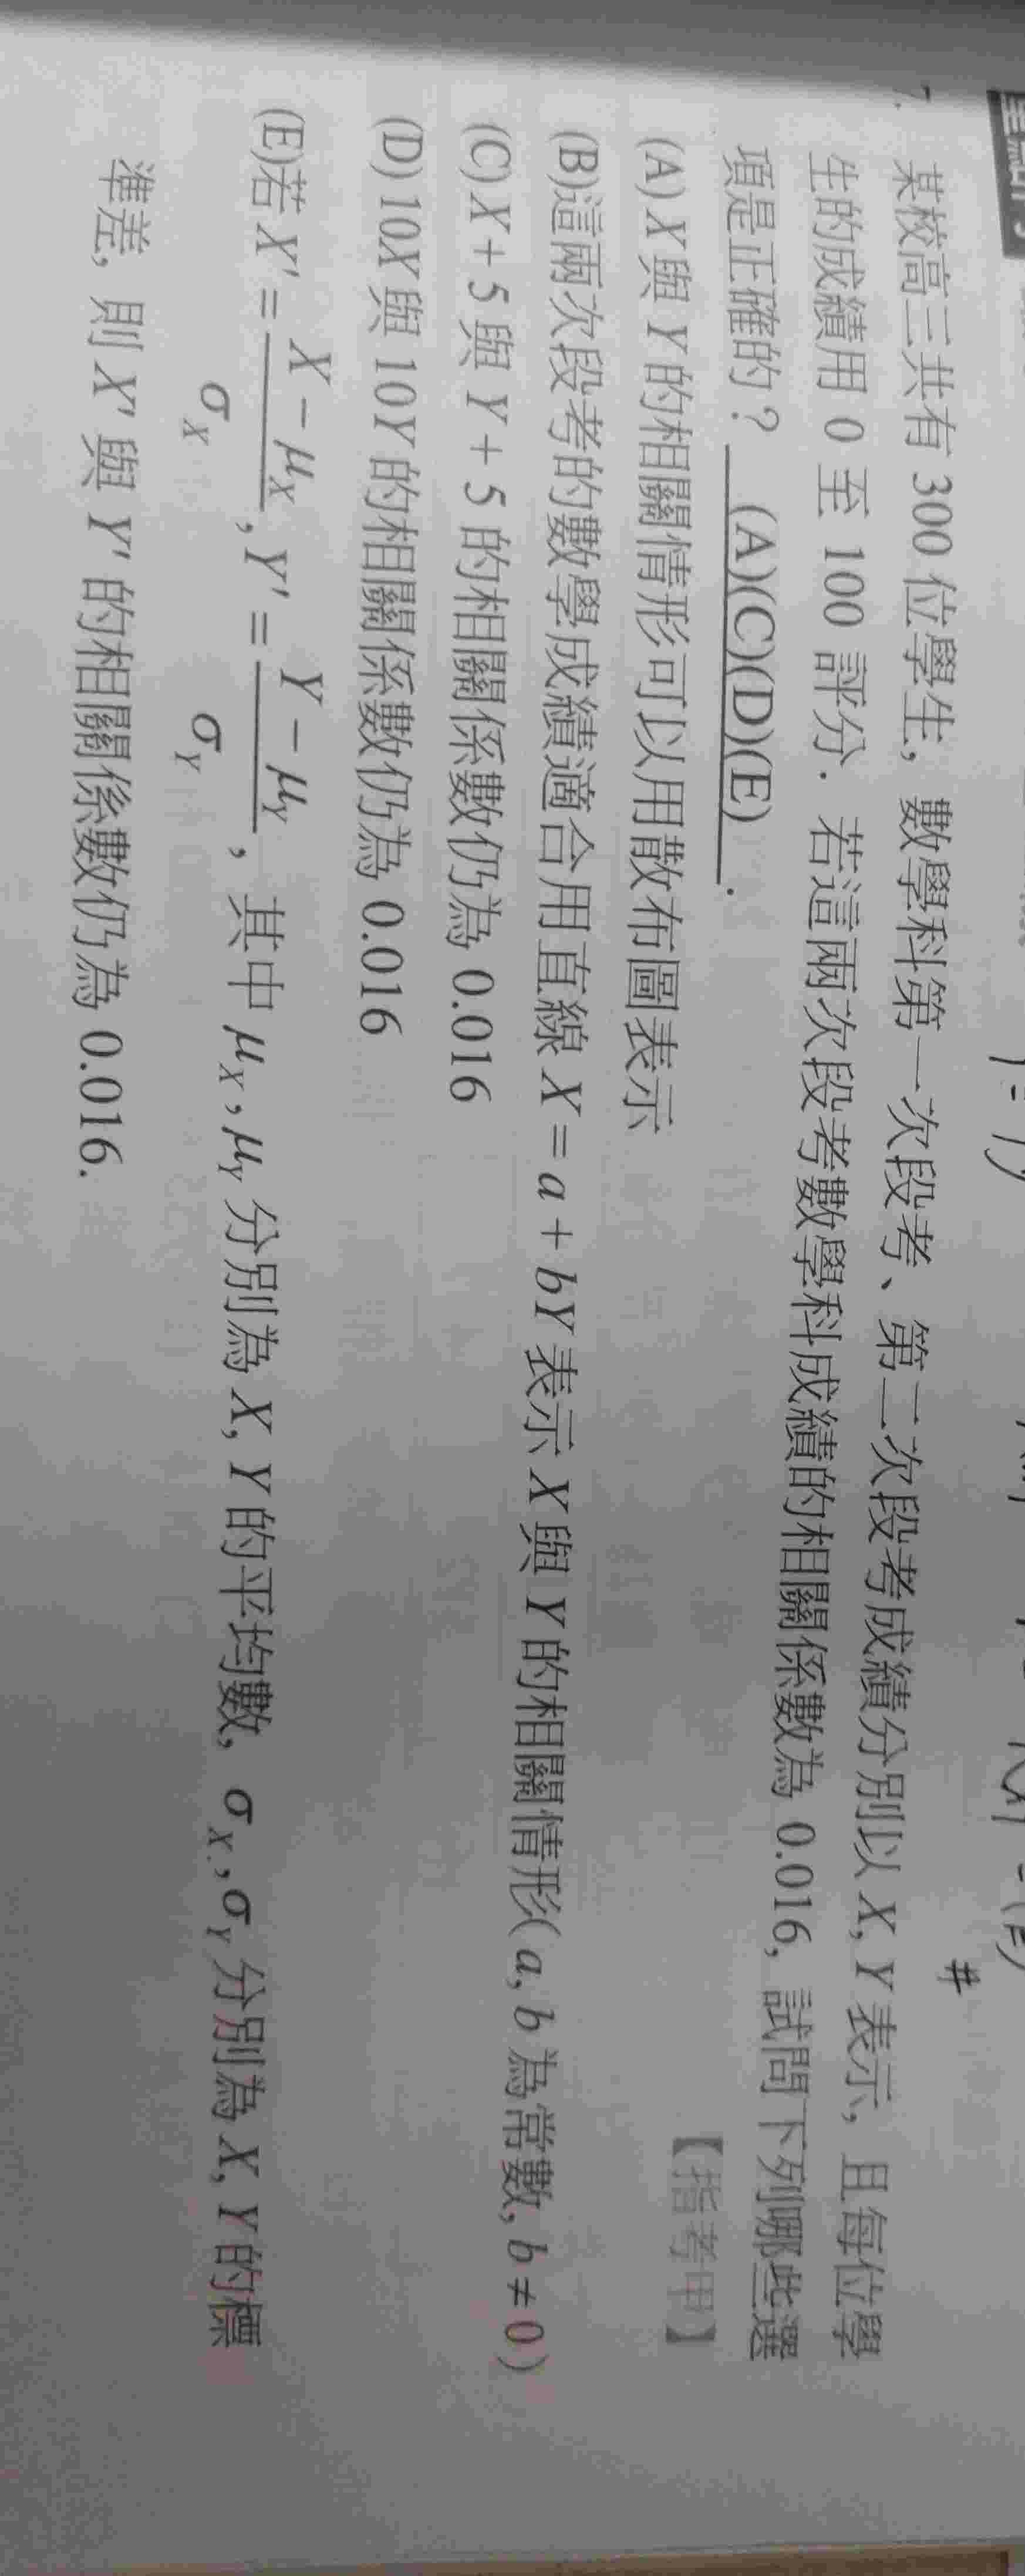 7. 某校高三共有 300 位學生, 數學科第一次段考、第二次段考成績分別以 X, Y 表示, 且每位學
生的成績用 0 至 100 評分. 若這兩次段考數學科成績的相關係數為 0.016, 試問下列哪些選
項是正確的? (A)(C)(D)(E) .
【指考甲】
(A) X 與 Y 的相關情形可以用散布圖表示
(B)這兩次段考的數學成績適合用直線 X = a + bY 表示 X 與 Y 的相關情形( a, b 為常數, b ≠ 0 )
(C) X + 5 與 Y + 5 的相關係數仍為 0.016
(D) 10X 與 10Y 的相關係數仍為 0.016
(E)若 X' = (X − μX)/σX , Y' = (Y − μY)/σY , 其中 μX , μY 分別為 X, Y 的平均數, σX , σY 分別為 X, Y 的標
準差, 則 X' 與 Y' 的相關係數仍為 0.016.